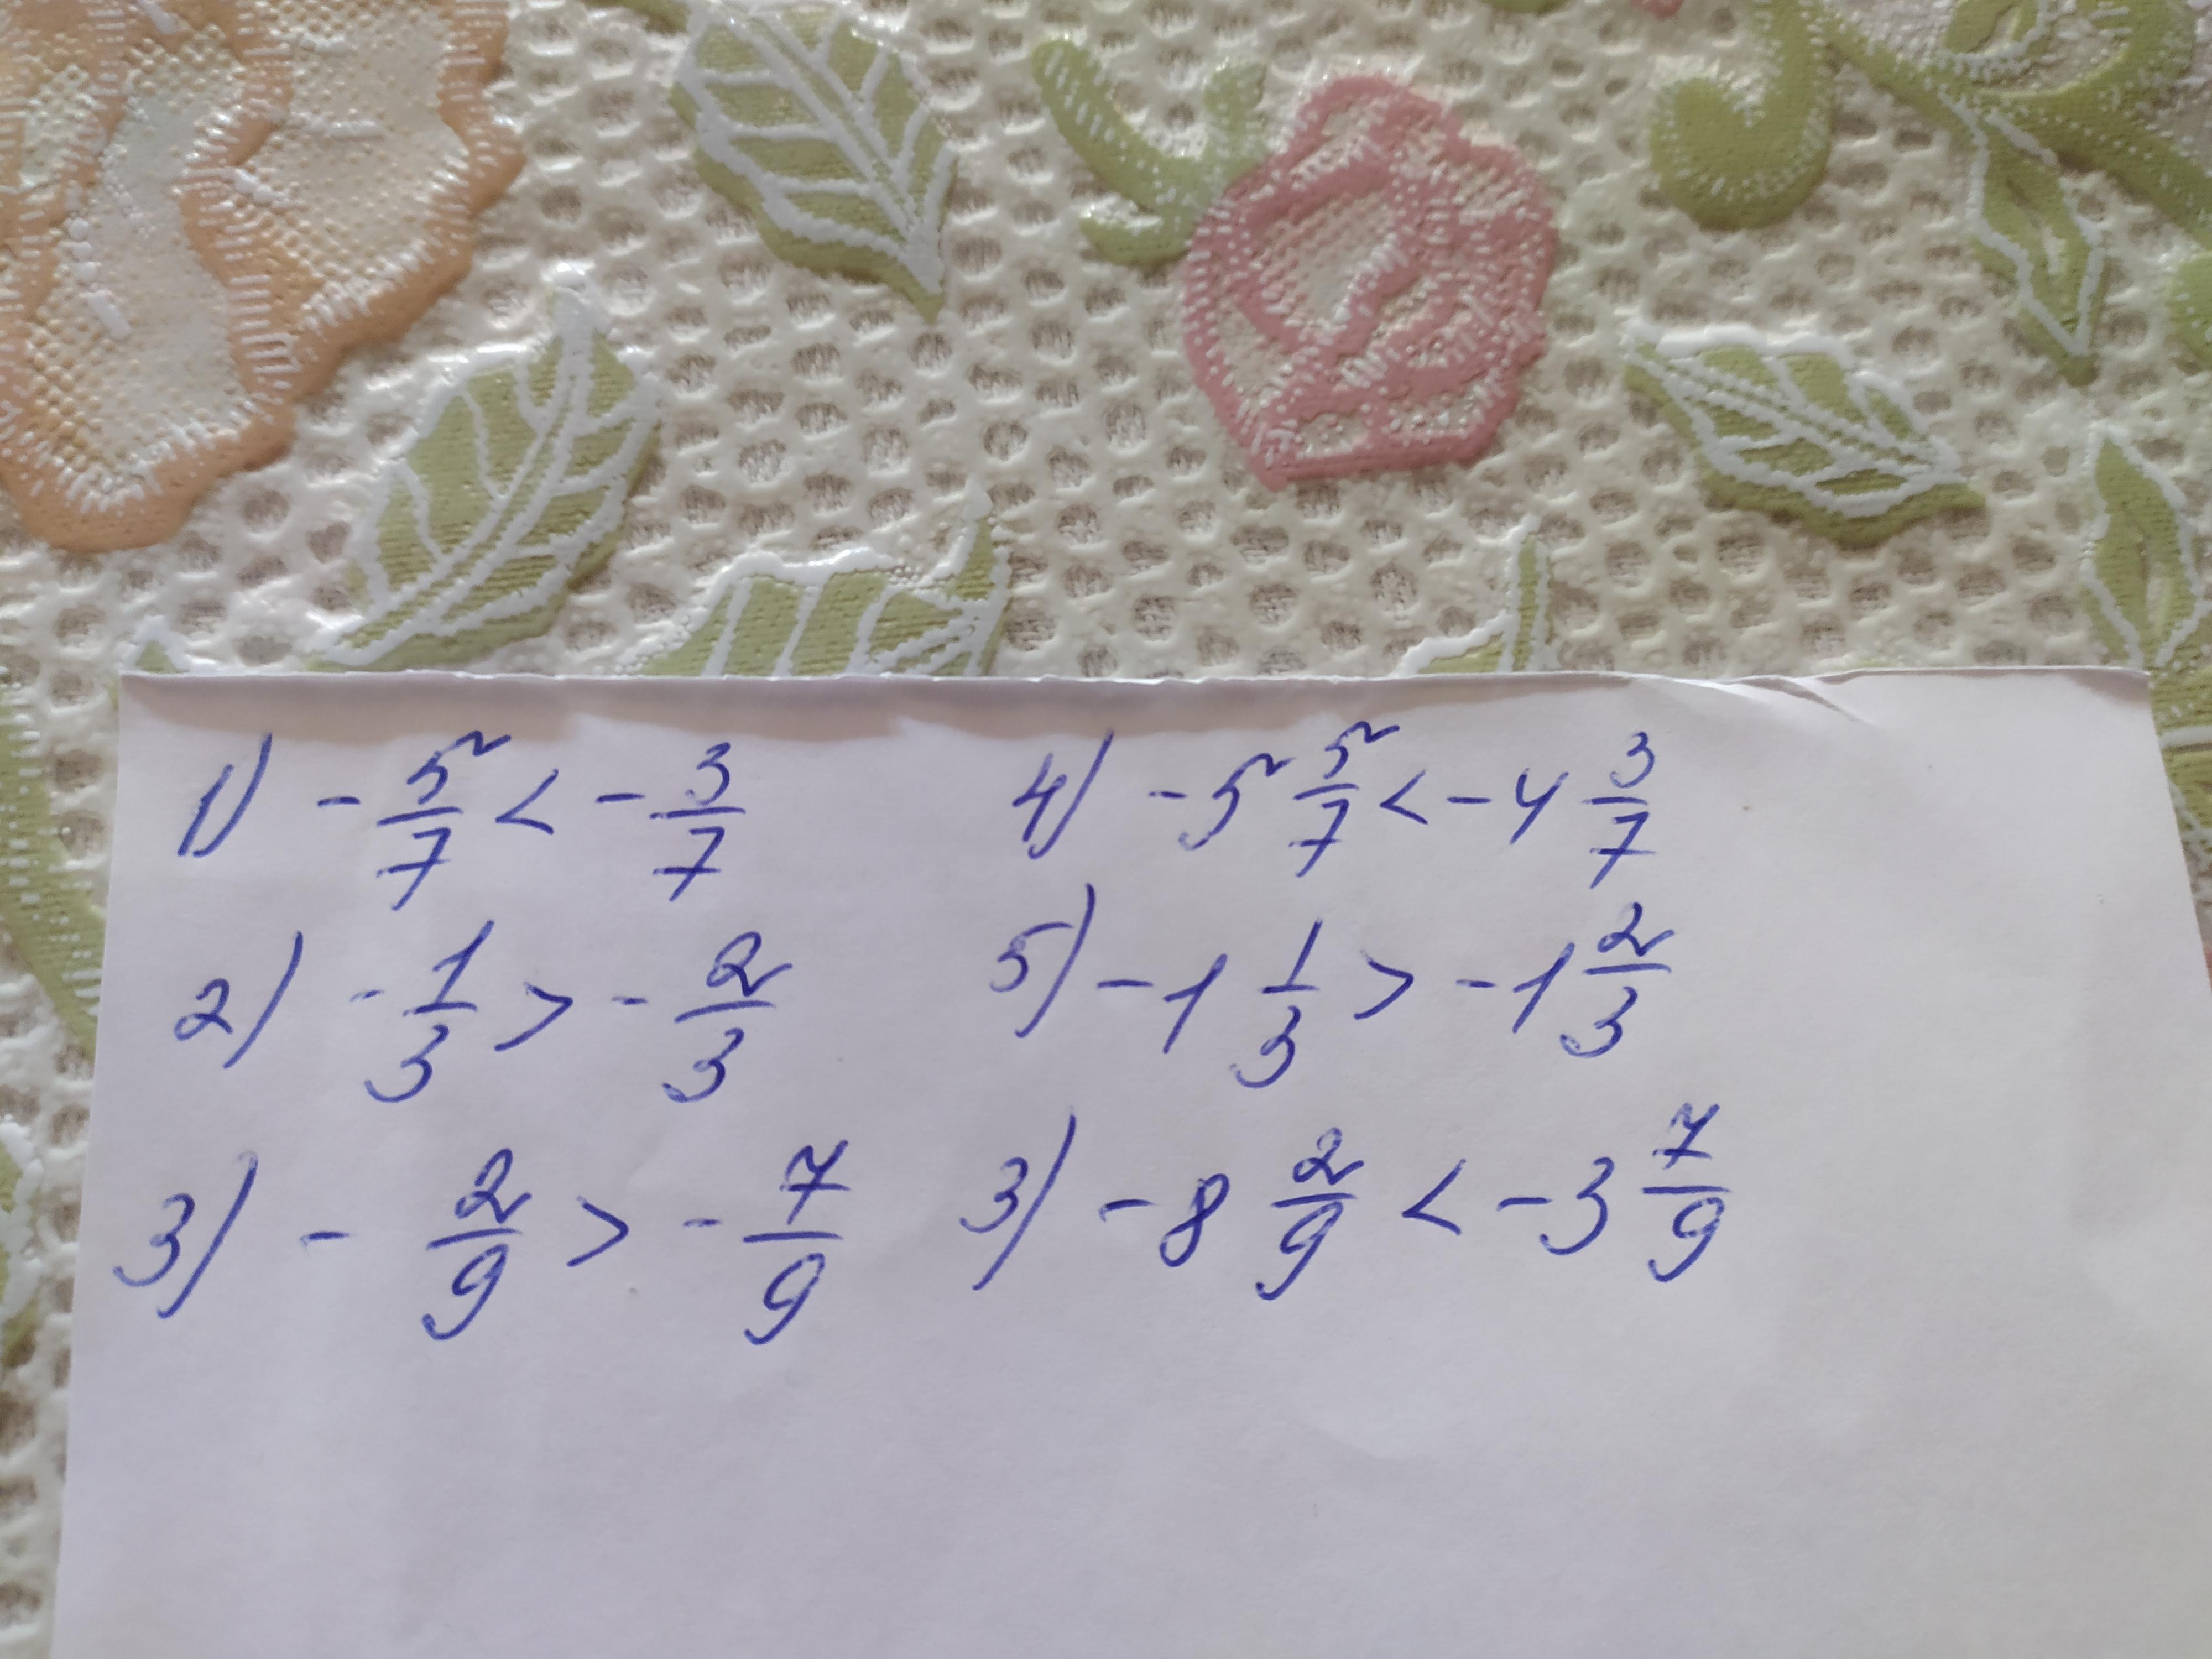 1) - 5/7 < - 3/7
2) - 1/3 > - 2/3
3) - 2/9 > - 7/9
4) - 5 5/7 < - 4 3/7
5) - 1 1/3 > - 1 2/3
3) - 8 2/9 < - 3 7/9